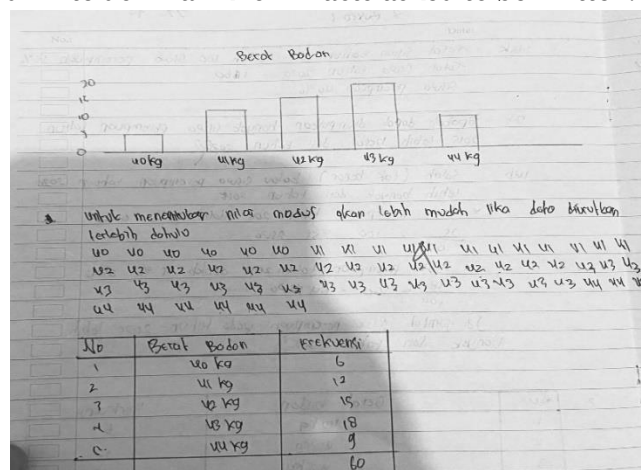 Berat Badan
20
15
10
5
0
40 kg 41 kg 42 kg 43 kg 44 kg
untuk menentukan nilai modus akan lebih mudah jika data diurutkan
terlebih dahulu
40 40 40 40 40 40 41 41 41 41 41 41 41 41 41 41 41 41
42 42 42 42 42 42 42 42 42 42 42 42 42 42 42 43 43
43 43 43 43 43 43 43 43 43 43 43 43 43 43 43 43 44 44
44 44 44 44 44 44
No Berat Badan Frekuensi
1 40 kg 6
2 41 kg 12
3 42 kg 15
4 43 kg 18
5. 44 kg 9
60